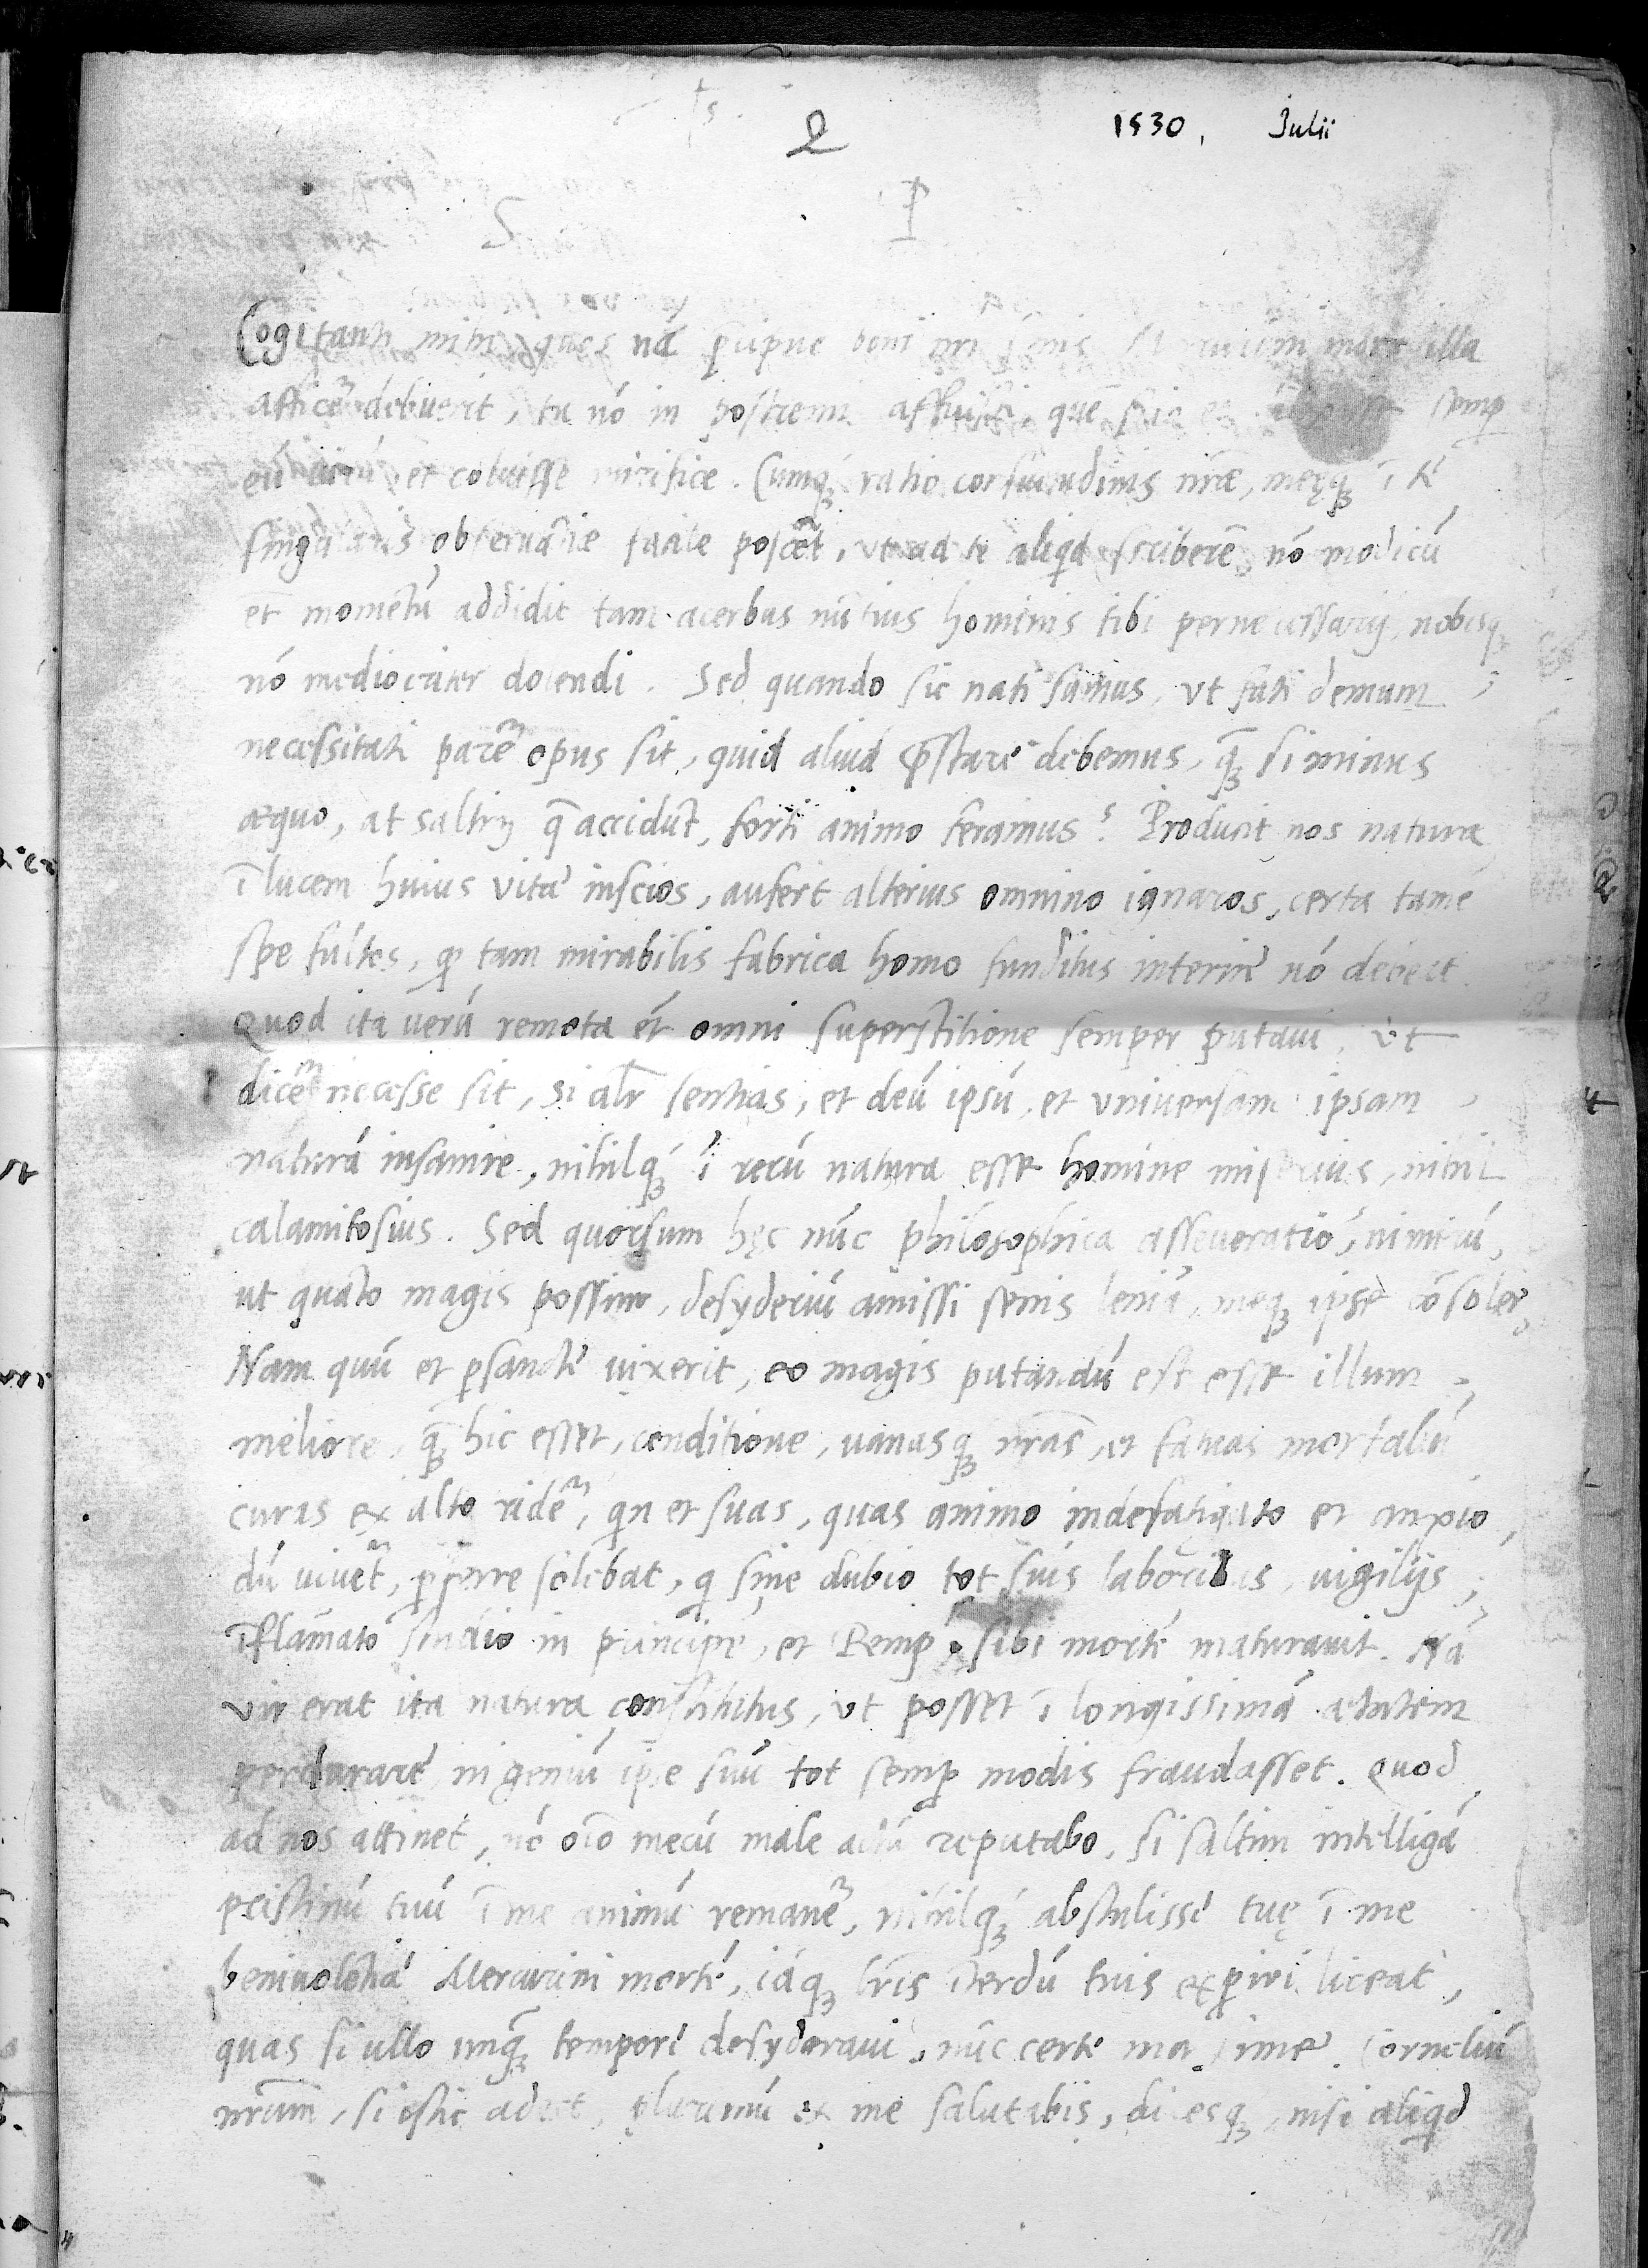 2
1530, Julii
S P
Cogitanti mihi, quos nā p̄cipue boni illa
afficē debuerit, tu nō in postremis semp
eū et coluisse mirifice. Cumq; ratio consuetudinis nr̄ae, meęq; ī te
singularis obseruātiae facile poscēt, ut ad te aliqd scriberē, nō modicū
et momētū addidit tam acerbus nūtius hominis tibi pernecessarij, nobisq;
nō mediocriter dolendi. Sed quando sic nati sumus, vt fati demum
necessitati parē opus sit, quid aliud p̄stare debemus, q̄ si minus
aequo, at saltim q̄ accidūt, forti animo feramus? Producit nos natura
ī lucem huius vitae inscios, aufert alterius omnino ignaros, certa tamē
spe fultos, q tam mirabilis fabrica homo funditus interire nō debeat.
Quod ita uerū remota et omni superstitione semper putaui, ut
dicē necesse sit, si alr sentias, et deū ipsū, et vniuersam ipsam
naturā insanire, nihilq; ī rerū natura esse homine miserius, nihil
calamitosius. Sed quorsum hęc nūc philosophica asseueratio? nimirū,
ut quāto magis possim, desyderiū amissi senis leniā, meq; ipse cōsoler.
Nam quū et psanctè uixerit, eo magis putandū est esse illum
meliore, q̄ hic esset, conditione, uanasq; nr̄as, et fatuas mortaliū
curas ex alto ridē, qn et suas, quas animo indefatigato et anxio,
dū uiuēt, pferre solebat, q sine dubio tot suis laboribus, uigilijs,
īflāmato studio in principē, et Remp. sibi mortē maturauit. Nā
vir erat ita natura constitutus, vt posset ī longissimā aetatem
perdurare, ni geniū ipse suū tot semp modis fraudasset. Quod
ad nos attinet, nō oīo mecū male actū reputabo, si saltim intelligā
pristinū tuū ī me animū remanē, nihilq; abstulisse tuę ī me
beniuolētiae Mercurini mortē, idq; lr̄is īterdū tuis expiri liceat,
quas si ullo unq̄ tempore desyderaui, nūc certe maxime. Corneliū
nr̄um, si istic adest, plurimū ex me salutabis, dicesq;, nisi aliqd